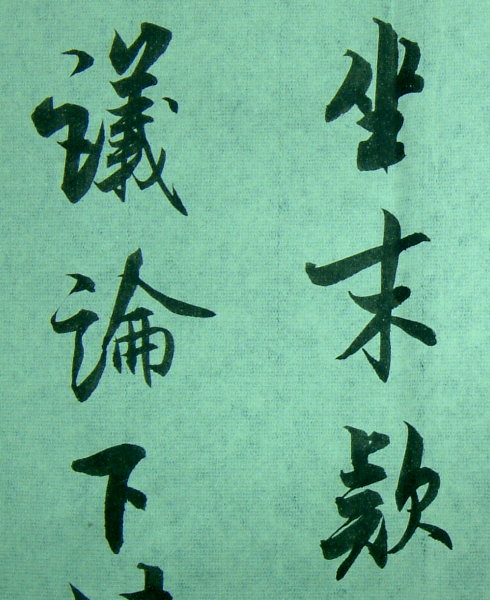 坐末款
議論下